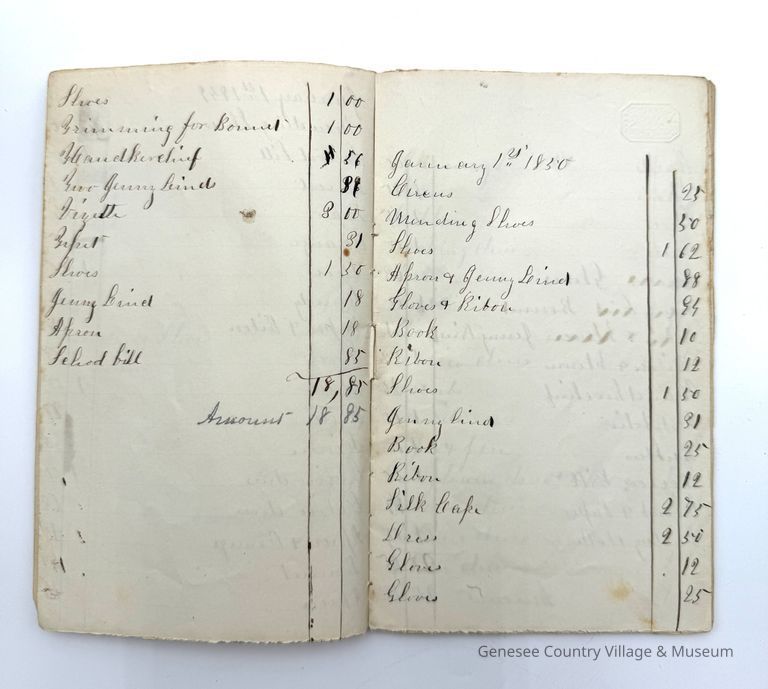 Shoes 1 00
Trimming for Bonnet 1 00
Handkerchief 56
Two Jenny Linds
Vizette 3 00
31
Shoes 1 50
Jenny Lind 18
Apron 18
School bill 85
18,85
Amount 18 85
January 1st 1850
Circus 25
Mending Shoes 50
Shoes 1 62
Apron & Jenny Lind 88
Gloves & Ribon
Book 10
Ribon 12
Shoes 1 50
Jenny Lind 31
Book 25
Ribon 12
Silk Cape 2 75
Dress 2 50
Gloves 12
Gloves 25
Genesee Country Village & Museum